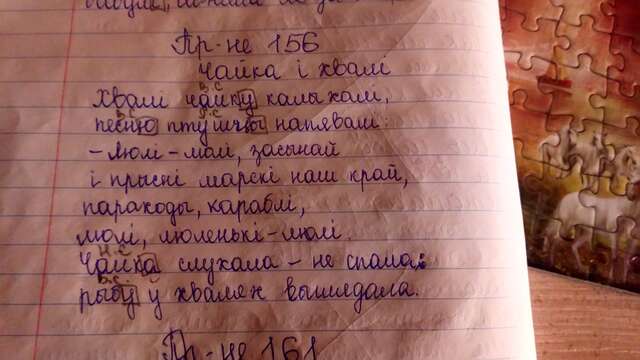 Пр-не 156
Чайка і хвалі
В.С
Хвалі чайку калыхалі,
В.С В.С
песню птушчы напявалі:
- Люлі-люлі, засынай
і прысні марскі наш край,
параходы, караблі,
люлі, люленькі-люлі.
Н.С
Чайка слухала - не спала:
В.С
рыбу ў хвалях выглядала.
Пр-не 161